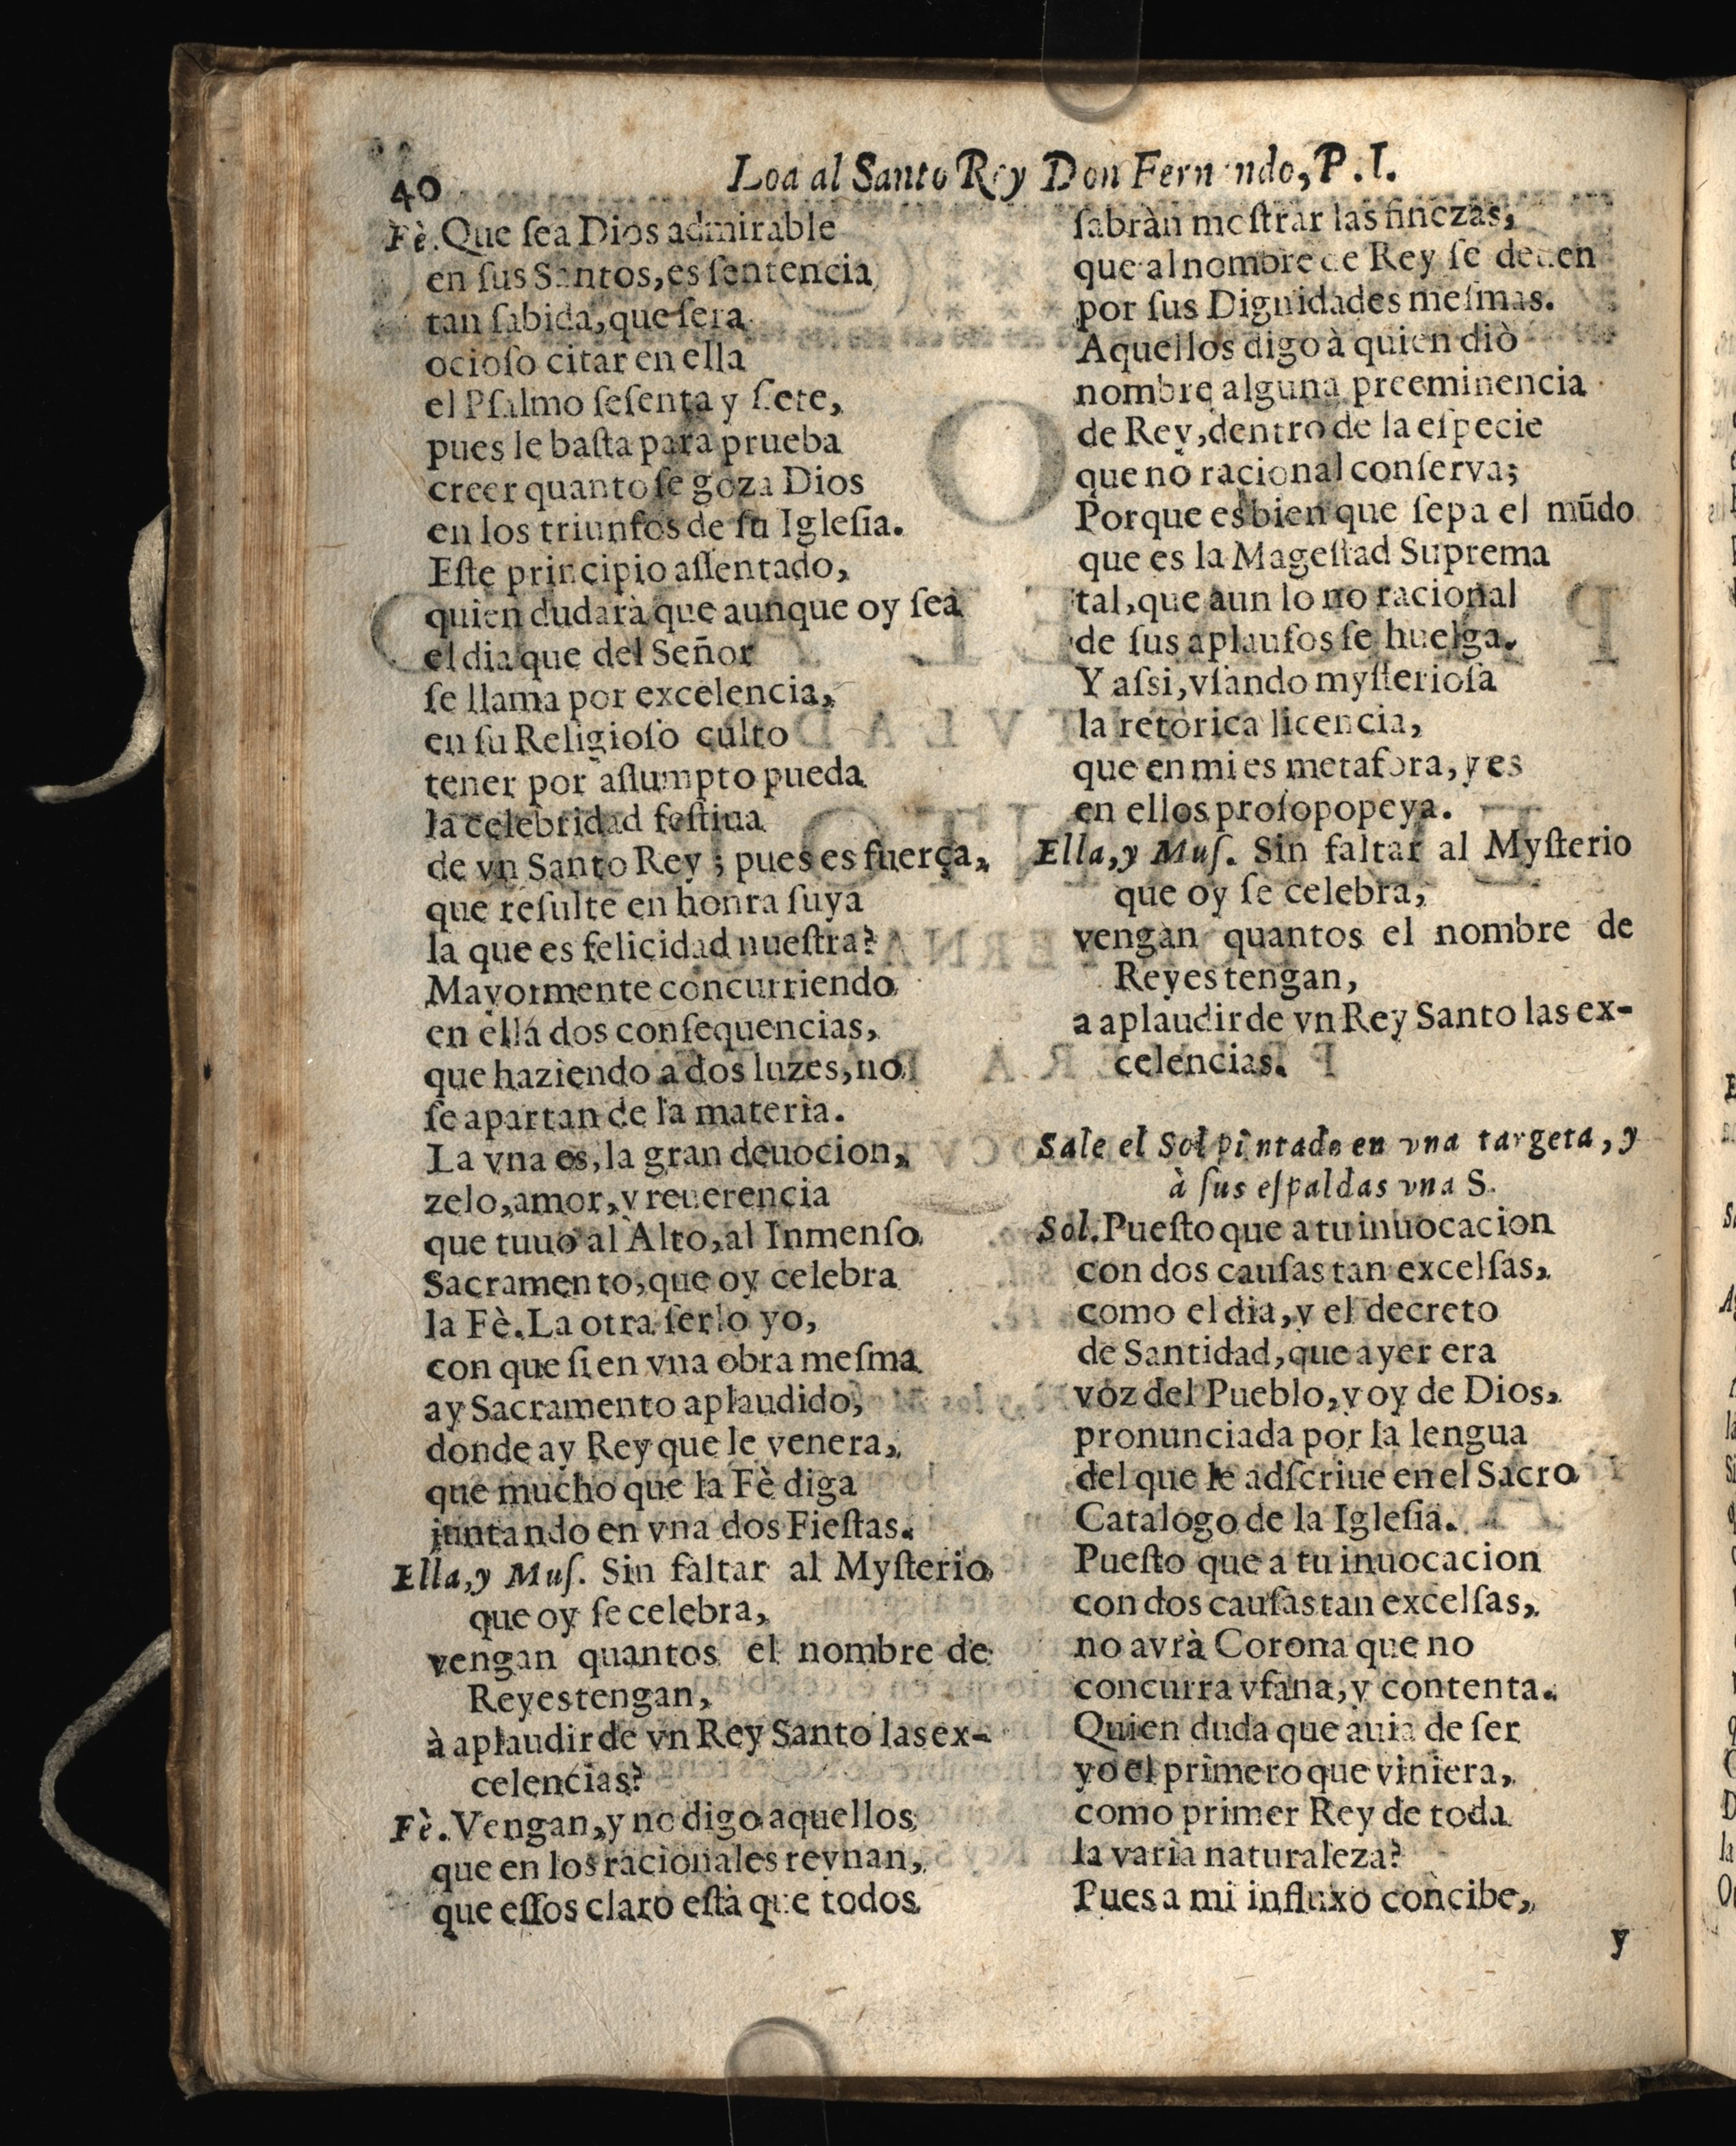 40
Loa al Santo Rey Don Fernando, P. I.
Fè. Que ſea Dios admirable
en ſus Santos, es ſentencia
tan ſabida, que ſera
ocioſo citar en ella
el Pſalmo ſeſenta y ſiete,
pues le baſta para prueba
creer quanto ſe goza Dios
en los triunfos de ſu Igleſia.
Eſte principio aſſentado,
quien dudarà que aunque oy ſea
el dia que del Señor
ſe llama por excelencia,
en ſu Religioſo culto
tener por aſſumpto pueda
la celebridad feſtiua
de vn Santo Rey ; pues es fuerça,
que reſulte en honra ſuya
la que es felicidad nueſtra?
Mayormente concurriendo
en ella dos conſequencias,
que haziendo a dos luzes, no
ſe apartan de la materia.
La vna es, la gran deuocion,
zelo, amor, y reuerencia
que tuuo al Alto, al Inmenſo
Sacramento, que oy celebra
la Fè. La otra ſerlo yo,
con que ſi en vna obra meſma
ay Sacramento aplaudido,
donde ay Rey que le venera,
que mucho que la Fè diga
juntando en vna dos Fieſtas.
Ella, y Muſ. Sin faltar al Myſterio
que oy ſe celebra,
vengan quantos el nombre de
Reyes tengan,
à aplaudir de vn Rey Santo las ex-
celencias?
Fè. Vengan, y no digo aquellos
que en los racionales reynan,
que eſſos claro eſtà que todos
ſabràn moſtrar las finezas,
que al nombre de Rey ſe deuen
por ſus Dignidades meſmas.
Aquellos digo à quien diò
nombre alguna preeminencia
de Rey, dentro de la eſpecie
que no racional conſerva;
Porque es bien que ſepa el mũdo
que es la Mageſtad Suprema
tal, que aun lo no racional
de ſus aplauſos ſe huelga.
Y aſsi, vſando myſterioſa
la retorica licencia,
que en mi es metafora, y es
en ellos proſopopeya.
Ella, y Muſ. Sin faltar al Myſterio
que oy ſe celebra,
vengan quantos el nombre de
Reyes tengan,
a aplaudir de vn Rey Santo las ex-
celencias.
Sale el Sol pintado en vna targeta, y
à ſus eſpaldas vna S.
Sol. Pueſto que a tu inuocacion
con dos cauſas tan excelſas,
como el dia, y el decreto
de Santidad, que ayer era
voz del Pueblo, y oy de Dios,
pronunciada por la lengua
del que le adſcriue en el Sacro
Catalogo de la Igleſia.
Pueſto que a tu inuocacion
con dos cauſas tan excelſas,
no avrà Corona que no
concurra vfana, y contenta.
Quien duda que auia de ſer
yo el primero que viniera,
como primer Rey de toda
la varia naturaleza?
Pues a mi influxo concibe,
y